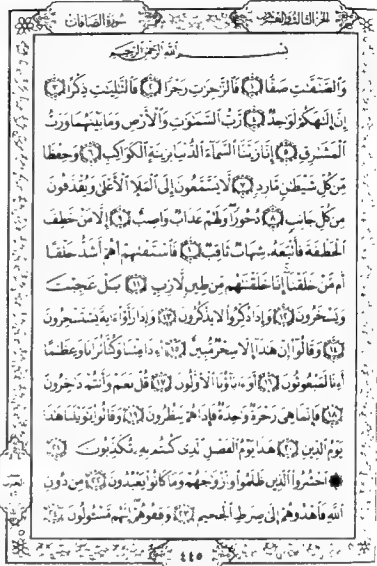 الجزء الثالث والعشرون سورة الصافات
بِسْمِ اللَّهِ الرَّحْمَٰنِ الرَّحِيمِ
وَالصَّٰٓفَّٰتِ صَفًّا ١ فَالزَّٰجِرَٰتِ زَجْرًا ٢ فَالتَّٰلِيَٰتِ ذِكْرًا ٣
إِنَّ إِلَٰهَكُمْ لَوَٰحِدٌ ٤ رَّبُّ السَّمَٰوَٰتِ وَالْأَرْضِ وَمَا بَيْنَهُمَا وَرَبُّ
الْمَشَٰرِقِ ٥ إِنَّا زَيَّنَّا السَّمَآءَ الدُّنْيَا بِزِينَةٍ الْكَوَاكِبِ ٦ وَحِفْظًا
مِّن كُلِّ شَيْطَٰنٍ مَّارِدٍ ٧ لَّا يَسَّمَّعُونَ إِلَى الْمَلَإِ الْأَعْلَىٰ وَيُقْذَفُونَ
مِن كُلِّ جَانِبٍ ٨ دُحُورًا وَلَهُمْ عَذَابٌ وَاصِبٌ ٩ إِلَّا مَنْ خَطِفَ
الْخَطْفَةَ فَأَتْبَعَهُۥ شِهَابٌ ثَاقِبٌ ١٠ فَاسْتَفْتِهِمْ أَهُمْ أَشَدُّ خَلْقًا
أَم مَّنْ خَلَقْنَآ إِنَّا خَلَقْنَٰهُم مِّن طِينٍ لَّازِبٍ ١١ بَلْ عَجِبْتَ
وَيَسْخَرُونَ ١٢ وَإِذَا ذُكِّرُوا۟ لَا يَذْكُرُونَ ١٣ وَإِذَا رَأَوْا۟ ءَايَةً يَسْتَسْخِرُونَ
١٤ وَقَالُوٓا۟ إِنْ هَٰذَآ إِلَّا سِحْرٌ مُّبِينٌ ١٥ أَءِذَا مِتْنَا وَكُنَّا تُرَابًا وَعِظَٰمًا
أَءِنَّا لَمَبْعُوثُونَ ١٦ أَوَءَابَآؤُنَا الْأَوَّلُونَ ١٧ قُلْ نَعَمْ وَأَنتُمْ دَٰخِرُونَ
١٨ فَإِنَّمَا هِيَ زَجْرَةٌ وَٰحِدَةٌ فَإِذَا هُمْ يَنظُرُونَ ١٩ وَقَالُوا۟ يَٰوَيْلَنَا هَٰذَا
يَوْمُ الدِّينِ ٢٠ هَٰذَا يَوْمُ الْفَصْلِ الَّذِي كُنتُم بِهِۦ تُكَذِّبُونَ ٢١
۞ احْشُرُوا۟ الَّذِينَ ظَلَمُوا۟ وَأَزْوَٰجَهُمْ وَمَا كَانُوا۟ يَعْبُدُونَ ٢٢ مِن دُونِ
اللَّهِ فَاهْدُوهُمْ إِلَىٰ صِرَٰطِ الْجَحِيمِ ٢٣ وَقِفُوهُمْ إِنَّهُم مَّسْـُٔولُونَ ٢٤
٤٤٥